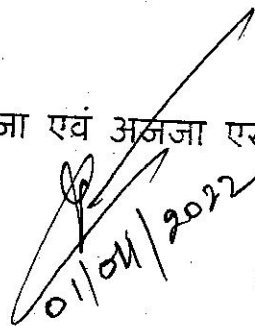 जा एवं अजजा एस
01/04/2022